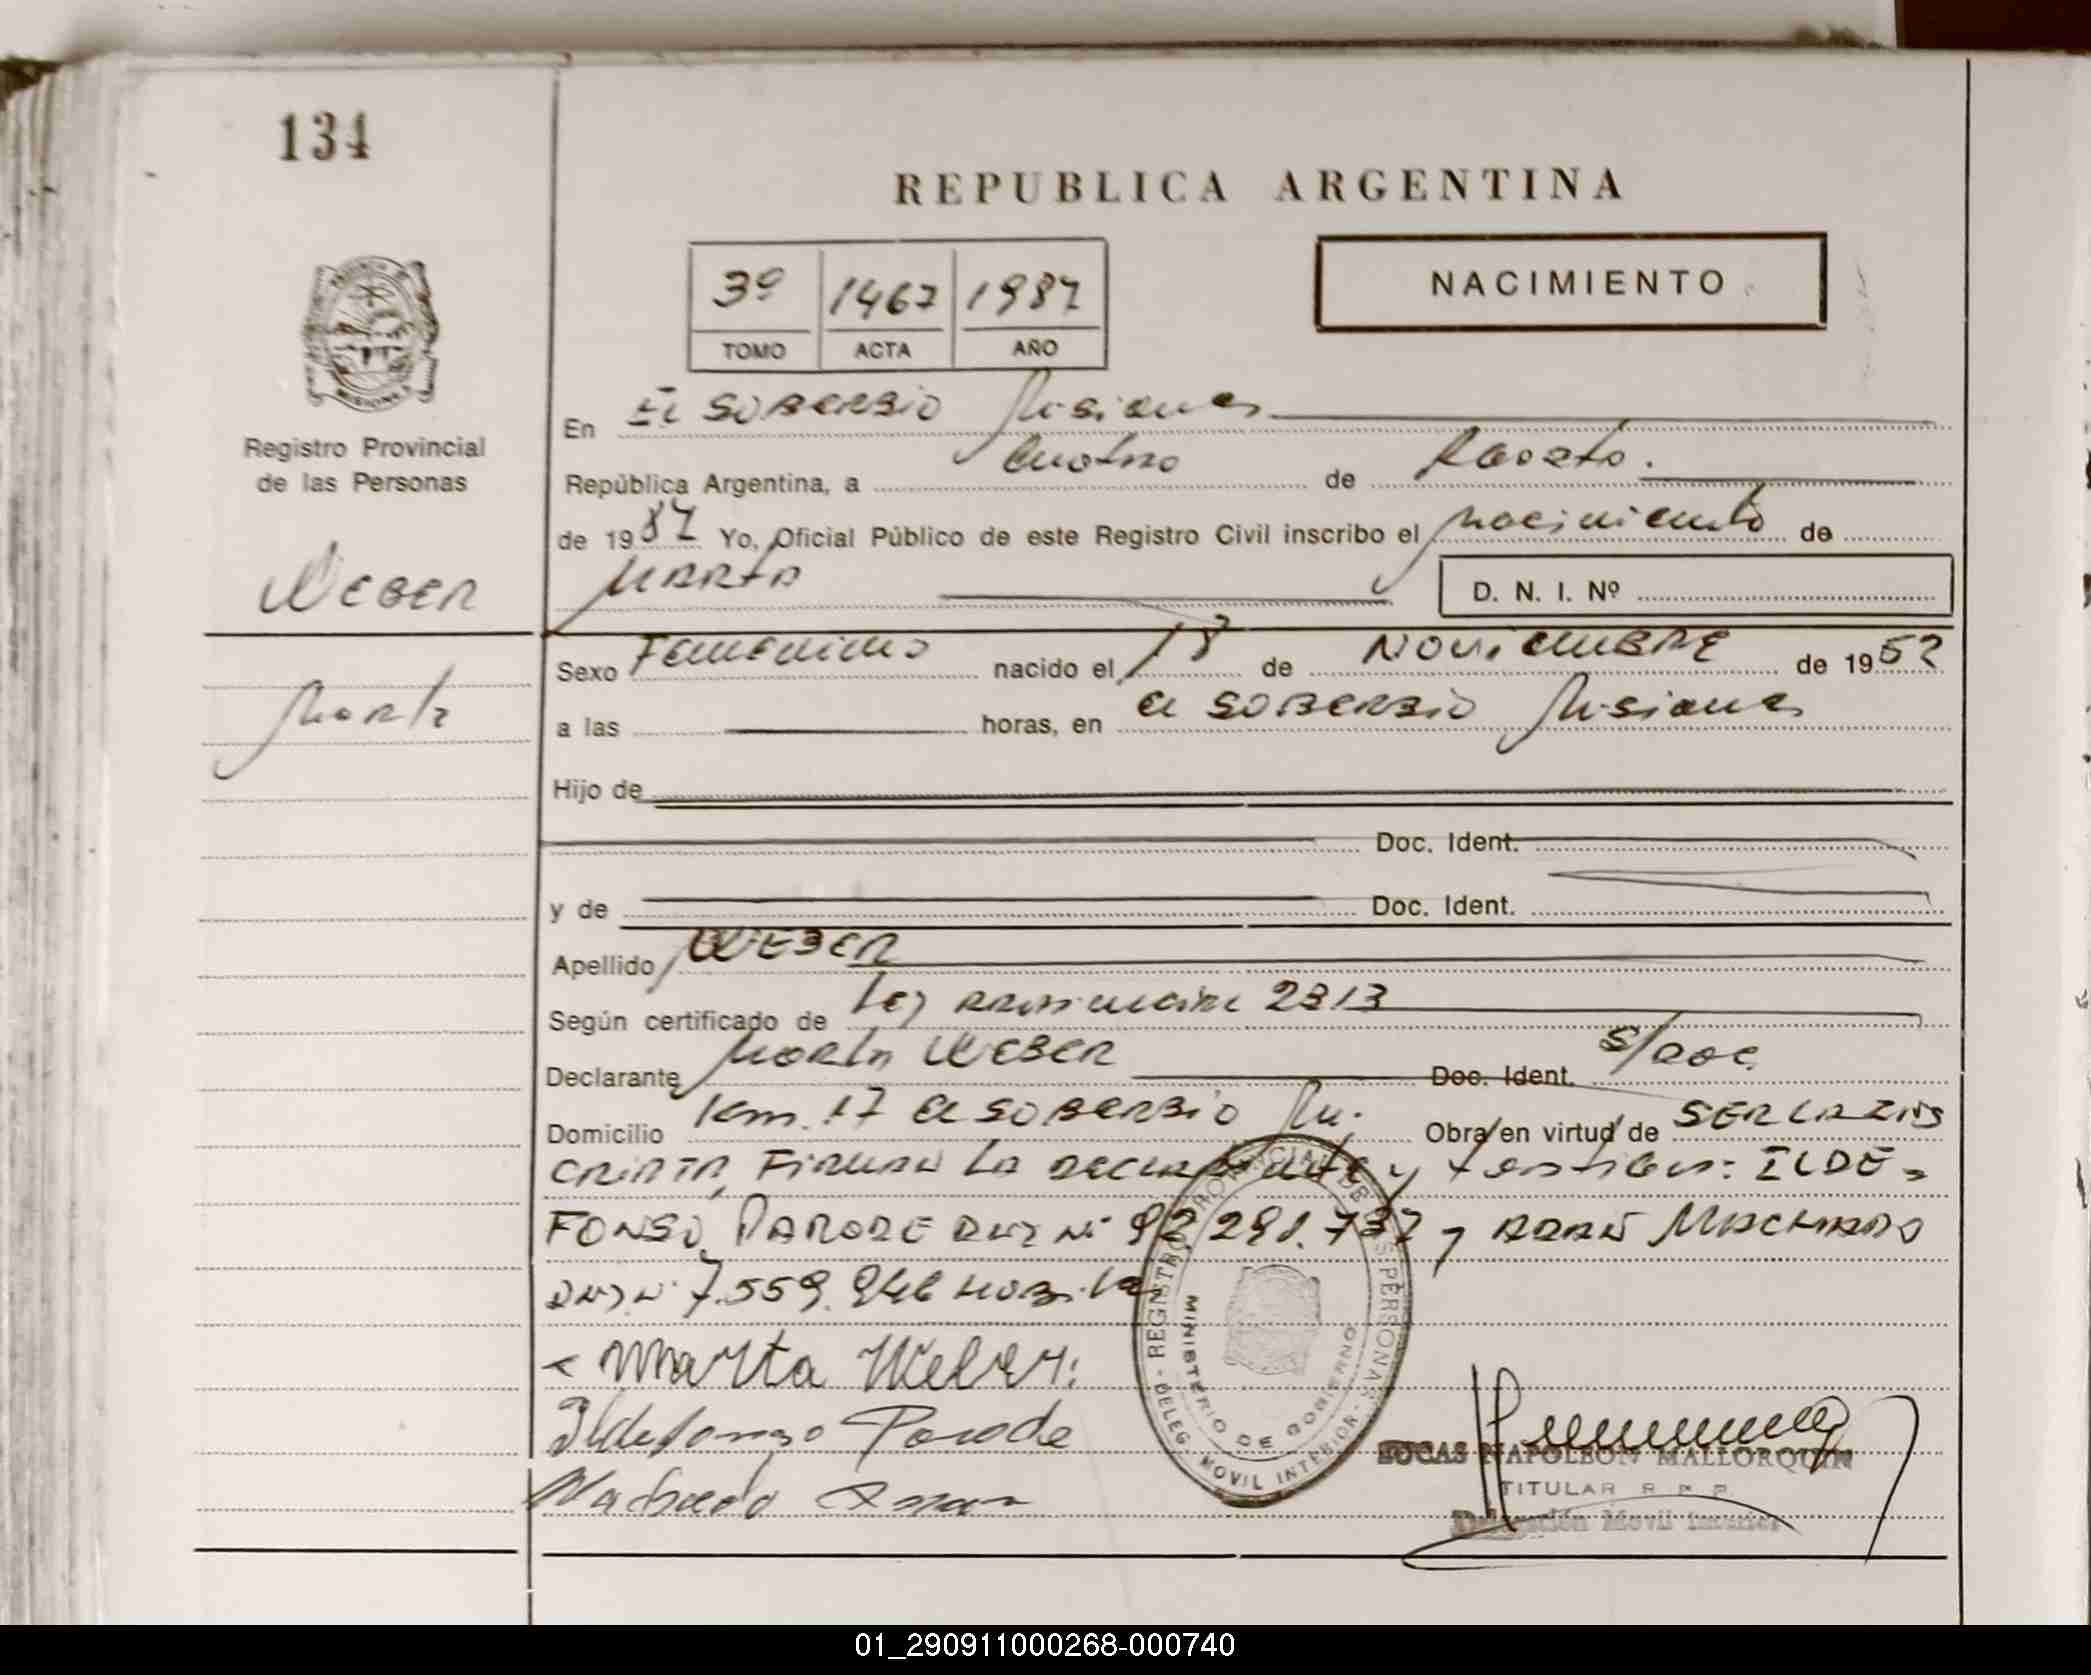 134
REPUBLICA ARGENTINA
NACIMIENTO
3º 1467 1987
TOMO ACTA AÑO
Registro Provincial
de las Personas
WEBER
Marta
En El SOBERBIO Misiones
República Argentina, a Cuatro de Agosto.
de 1987 Yo, Oficial Público de este Registro Civil inscribo el nacimiento de
MARTA
D. N. I. Nº
Sexo Femenino nacido el 18 de NOVIEMBRE de 1952
a las horas, en El SOBERBIO Misiones
Hijo de
Doc. Ident.
y de Doc. Ident.
Apellido WEBER
Según certificado de Ley 2313
Declarante Marta WEBER Doc. Ident. S/Doc.
Domicilio Km. 17 El SOBERBIO Mi. Obra en virtud de SER
Firman la declarante y testigos: ILDE-
FONSO PARODE DNI Nº 92.291.737 y ADAN MACHADO
DNI Nº 7.559.946
Marta Weber
Ildefonso Parode
Machado
REGISTRO PROVINCIAL DE LAS PERSONAS
MINISTERIO DE GOBIERNO
DELEG. MOVIL INTERIOR
LUCAS NAPOLEON MALLORQUIN
TITULAR R. P. P.
Delegación Movil Interior
01_290911000268-000740